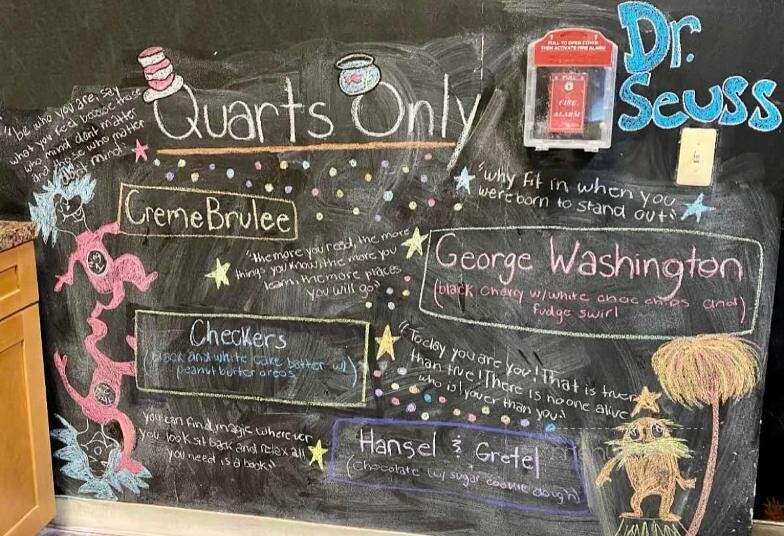 Dr.
Seuss
PULL TO OPEN COVER
THEN ACTIVATE FIRE ALARM
PULL
FIRE
ALARM
Quarts Only
"be who you are, say
what you feel those
who mind don't matter
and those who matter
don't mind"
"why fit in when you
were born to stand out"
CremeBrulee
"the more you read, the more
things you know, the more you
learn, the more places
you will go"
George Washington
(black cherry w/white choc chips and)
fudge swirl
Checkers
(black and white cake batter w/)
peanut butter oreos
"Today you are you! That is truer
than true! There is no one alive
who is youer than you."
you can find magic wherever
you look sit back and relax all
you need is a book"
Hansel & Gretel
(chocolate w/ sugar cookie dough)